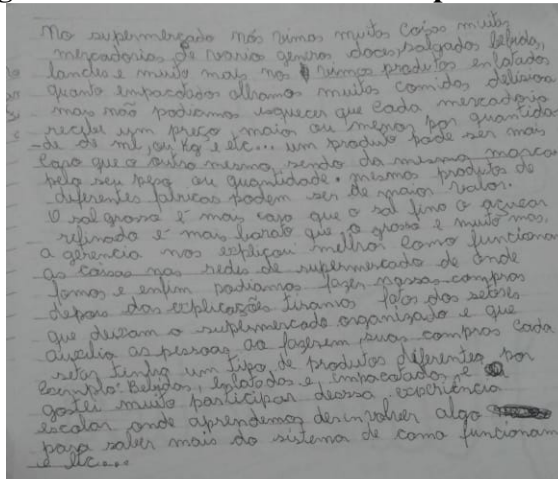 No supermercado nós vimos muitas coisas muitas
mercadorias de vario genero, doces, salgados bebida,
lanches e muito mais nos vimos produtos enlatados
quanto empacotados olhamos muitas comidas deliciosa
mas não podiamos esquecer que cada mercadoria
recebe um preço, maior ou menor por quantida
-de de ml, ou Kg e etc... um produto pode ser mais
caro que o outro mesmo sendo da mesma marca
pelo seu peso ou quantidade. mesmo produtos de
diferentes fabricas podem ser de maior valor.
O sal grosso é mais caro que o sal fino o açucar
refinado é mais barato que o grosso e muito mas.
a gerencia nos explicou melhor como funciona
as coisas nas redes de supermercado de onde
fomos e enfim podiamos fazer nossas compras
depois das explicações tiramos fotos dos setores
que deixam o supermercado organizado e que
auxilia as pessoas ao fazerem suas compras cada
setor tinha um tipo de produtos diferentes por
exemplo: Bebidas, enlatados e, empacotados, e
gostei muito participar dessa experiência
escolar onde aprendemos desinvolver algo
para saber mais do sistema de como funcionam
e etc...